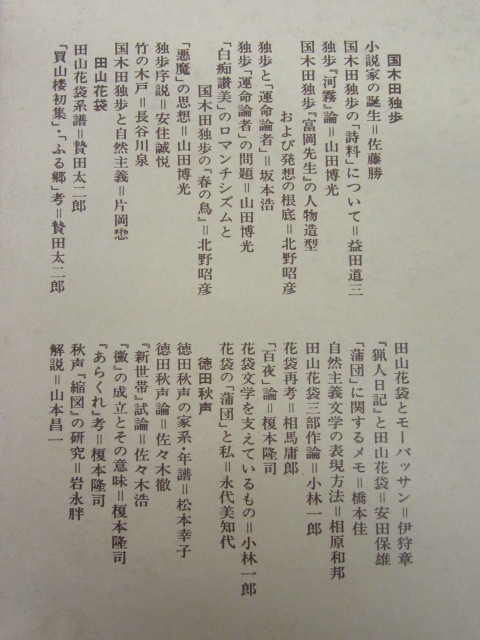 国木田独歩
小説家の誕生＝佐藤勝
国木田独歩の「詩料」について＝益田道三
独歩『河霧』論＝山田博光
国木田独歩『富岡先生』の人物造型
および発想の根底＝北野昭彦
独歩と「運命論者」＝坂本浩
独歩「運命論者」の問題＝山田博光
「白痴讃美」のロマンチシズムと
国木田独歩の『春の鳥』＝北野昭彦
「悪魔」の思想＝山田博光
独歩序説＝安住誠悦
竹の木戸＝長谷川泉
国木田独歩と自然主義＝片岡懋
田山花袋
田山花袋系譜＝贄田太二郎
「買山楼初集」・「ふる郷」考＝贄田太二郎
田山花袋とモーパッサン＝伊狩章
『猟人日記』と田山花袋＝安田保雄
「蒲団」に関するメモ＝橋本佳
自然主義文学の表現方法＝相原和邦
田山花袋三部作論＝小林一郎
花袋再考＝相馬庸郎
「百夜」論＝榎本隆司
花袋文学を支えているもの＝小林一郎
花袋の「蒲団」と私＝永代美知代
徳田秋声
徳田秋声の家系・年譜＝松本幸子
徳田秋声論＝佐々木徹
『新世帯』試論＝佐々木浩
『黴』の成立とその意味＝榎本隆司
『あらくれ』考＝榎本隆司
秋声『縮図』の研究＝岩永胖
解説＝山本昌一